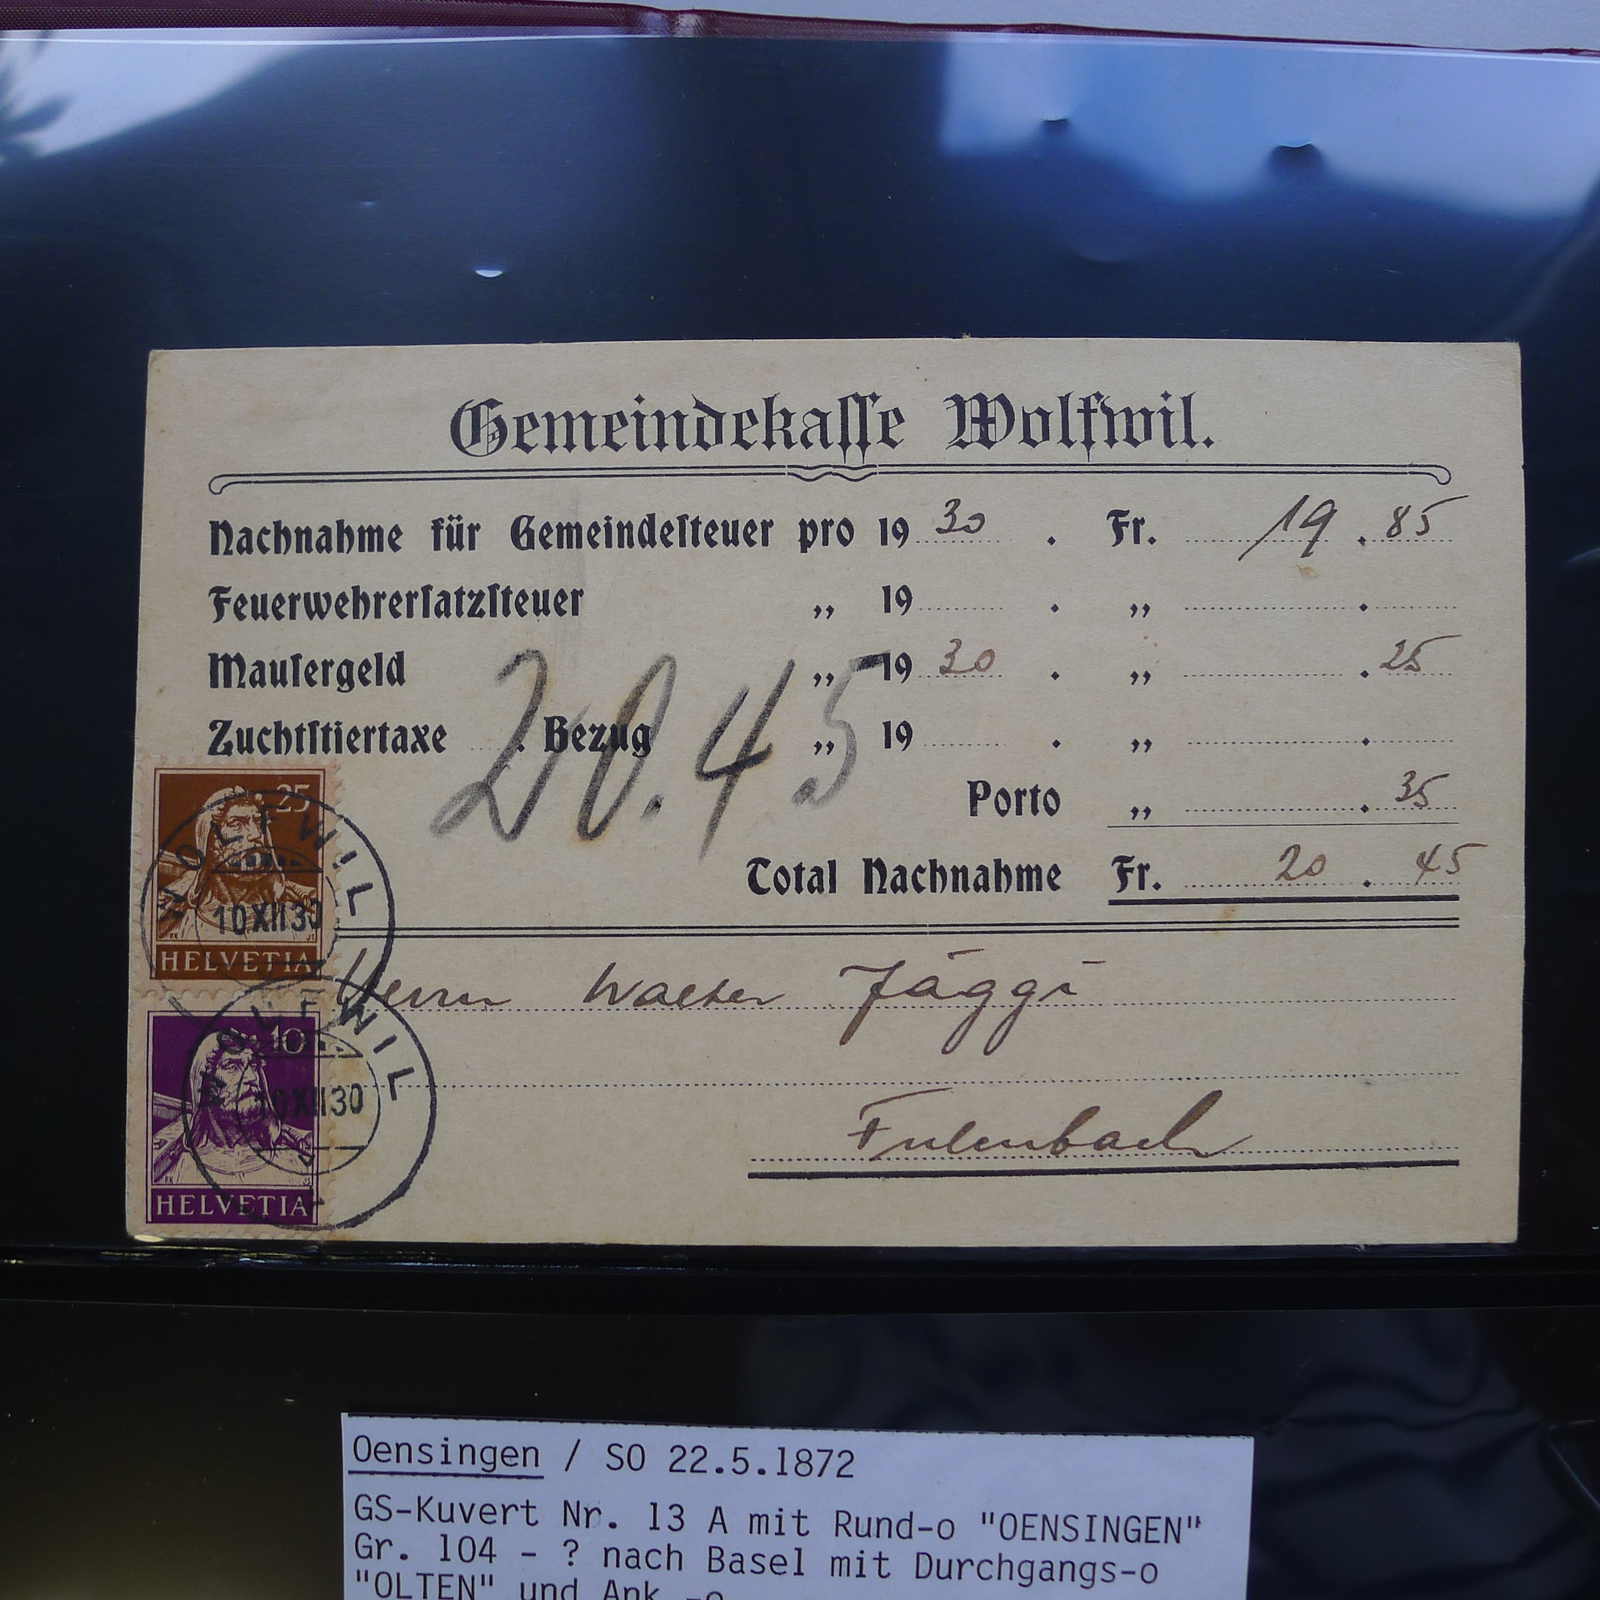 Gemeindekasse Wolfwil.
Nachnahme für Gemeindesteuer pro 19 30 . Fr. 19 . 85
Feuerwehrersatzsteuer „ 19 . „ .
Mausergeld „ 19 30 . „ . 25
Zuchtstiertaxe . Bezug „ 19 . „ .
20.45
Porto „ . 35
Total Nachnahme Fr. 20 . 45
25
WOLFWIL
10XII30
HELVETIA
Herrn Walter Jäggi
10
WOLFWIL
10XII30
HELVETIA
Fulenbach
Oensingen / SO 22.5.1872
GS-Kuvert Nr. 13 A mit Rund-o "OENSINGEN"
Gr. 104 - ? nach Basel mit Durchgangs-o
"OLTEN" und Ank.-o